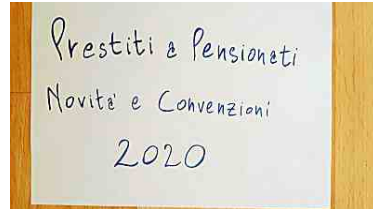 Prestiti a Pensionati
Novita' e Convenzioni
2020